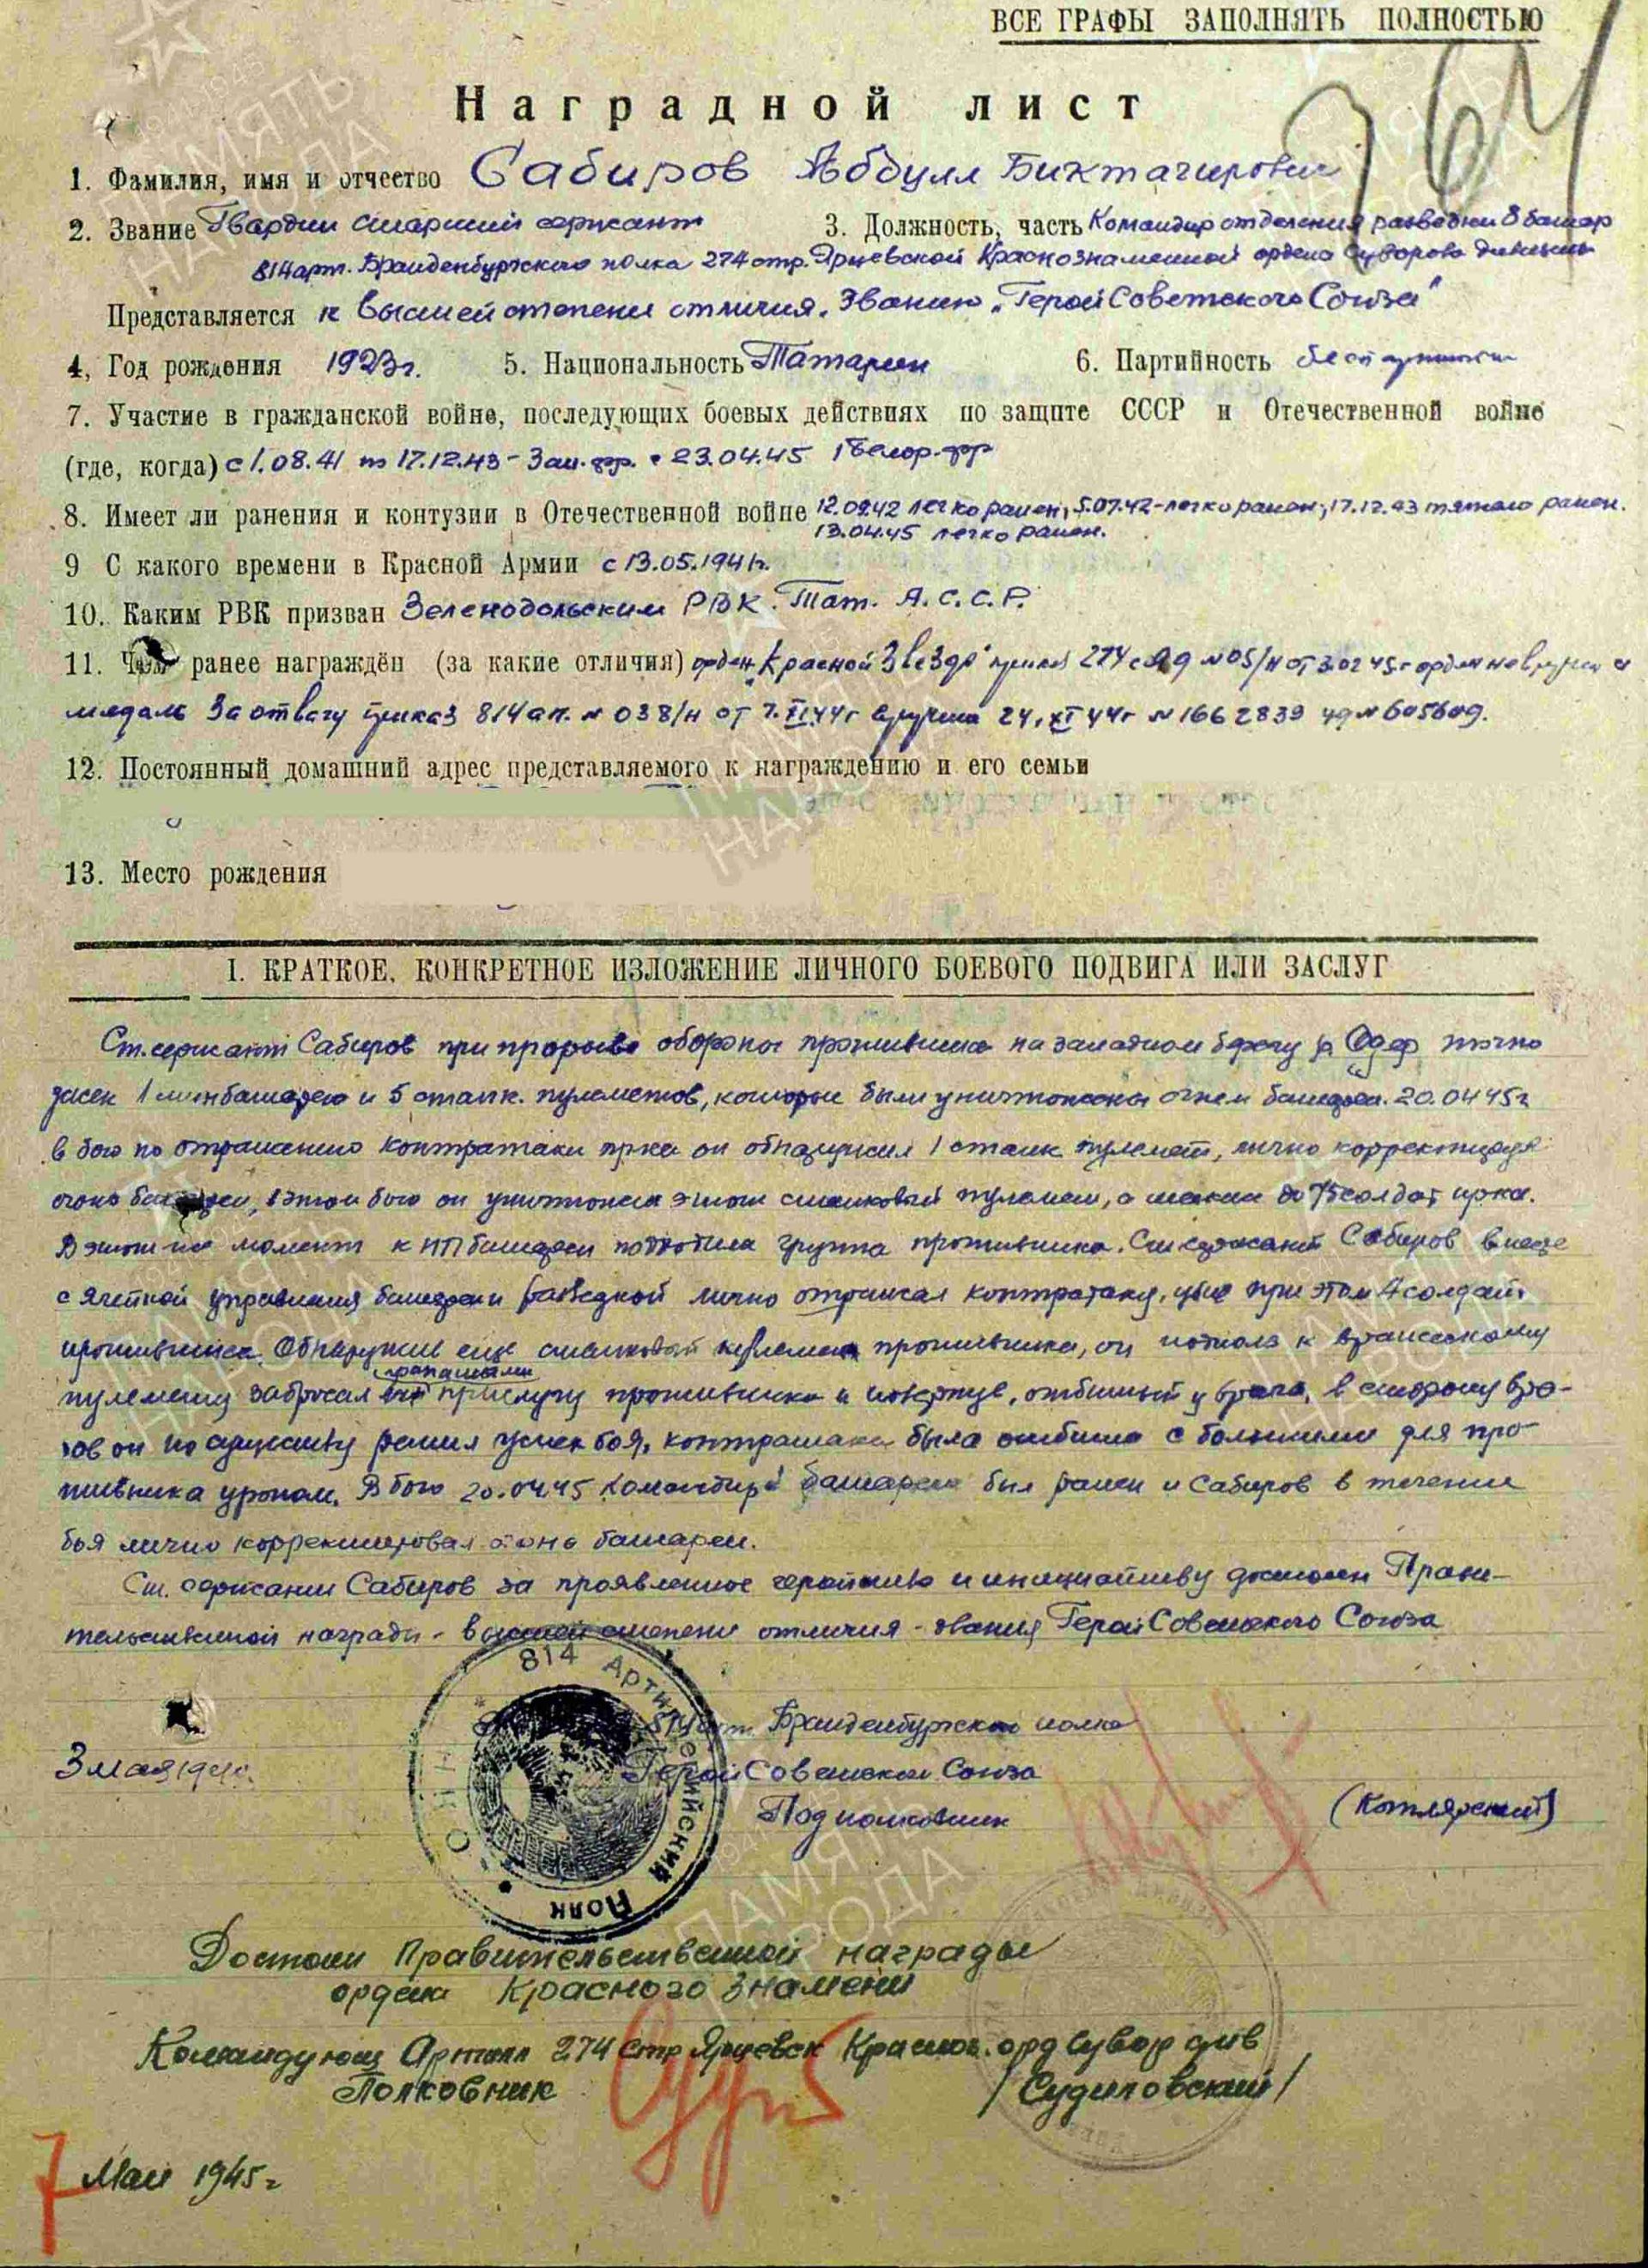 ВСЕ ГРАФЫ ЗАПОЛНЯТЬ ПОЛНОСТЬЮ
764
Наградной лист
1. Фамилия, имя и отчество Сабиров Абдулл Биктагирович
2. Звание Гвардии старший сержант 3. Должность, часть Командир отделения разведки 8 батар
814 арт. Бранденбургского полка 274 стр. Ярцевской Краснознаменной ордена Суворова дивизии
Представляется к высшей степени отличия. Званию „Герой Советского Союза"
4. Год рождения 1923г. 5. Национальность Татарин 6. Партийность беспартийн
7. Участие в гражданской войне, последующих боевых действиях по защите СССР и Отечественной войне
(где, когда) с 1.08.41 по 17.12.43 - Зап. фр. с 23.04.45 1 Белор. фр
8. Имеет ли ранения и контузии в Отечественной войне 12.09.42 легко ранен, 5.07.42 - легко ранен, 17.12.43 тяжело ранен.
13.04.45 легко ранен.
9 С какого времени в Красной Армии с 13.05.1941г.
10. Каким РВК призван Зеленодольским РВК. Тат. А.С.С.Р.
11. Чем ранее награждён (за какие отличия) орден „Красной Звезды" приказ 274 сд № 05/н от 3.02.45г орден не вручен и
медаль За отвагу приказ 814 ап. № 038/н от 7.XI.44г вручена 24.XI.44г № 1662839 уд № 605609.
12. Постоянный домашний адрес представляемого к награждению и его семьи
13. Место рождения
I. КРАТКОЕ, КОНКРЕТНОЕ ИЗЛОЖЕНИЕ ЛИЧНОГО БОЕВОГО ПОДВИГА ИЛИ ЗАСЛУГ
Ст. сержант Сабиров при прорыве обороны противника на западном берегу р. Одер точно
засек 1 минбатарею и 5 станк. пулеметов, которые были уничтожены огнем батареи. 20.04.45г
в бою по отражению контратаки пр-ка он обнаружил 1 станк. пулемет, лично корректируя
огонь батареи, в этом бою он уничтожил этот станковый пулемет, а также до 75 солдат пр-ка.
В этот же момент к НП батареи подходила группа противника. Ст. сержант Сабиров вместе
с ячейкой управления батареи и разведкой лично отражал контратаку, убив при этом 4 солдат
противника. Обнаружив еще станковый пулемет противника, он подполз к вражескому
пулемету забросал гранатами прислугу противника и повернув, отбитый у врага, в сторону вра-
гов он по существу решил успех боя, контратака была отбита с большими для про-
тивника уроном. В бою 20.04.45 командир батареи был ранен и Сабиров в течении
боя лично корректировал огонь батареи.
Ст. сержант Сабиров за проявленное геройство и инициативу достоин Прави-
тельственной награды - высшей степени отличия - звания Герой Советского Союза
814 Артиллерийский Полк
814 арт. Бранденбургского полка
3 мая
Герой Советского Союза
Подполковник (Котлярский)
Достоин Правительственной награды
ордена Красного Знамени
Командующ Артилл 274 стр Ярцевск Красноз. орд Сувор див
Полковник /Судиловский/
7 Мая 1945г
ПАМЯТЬ НАРОДА